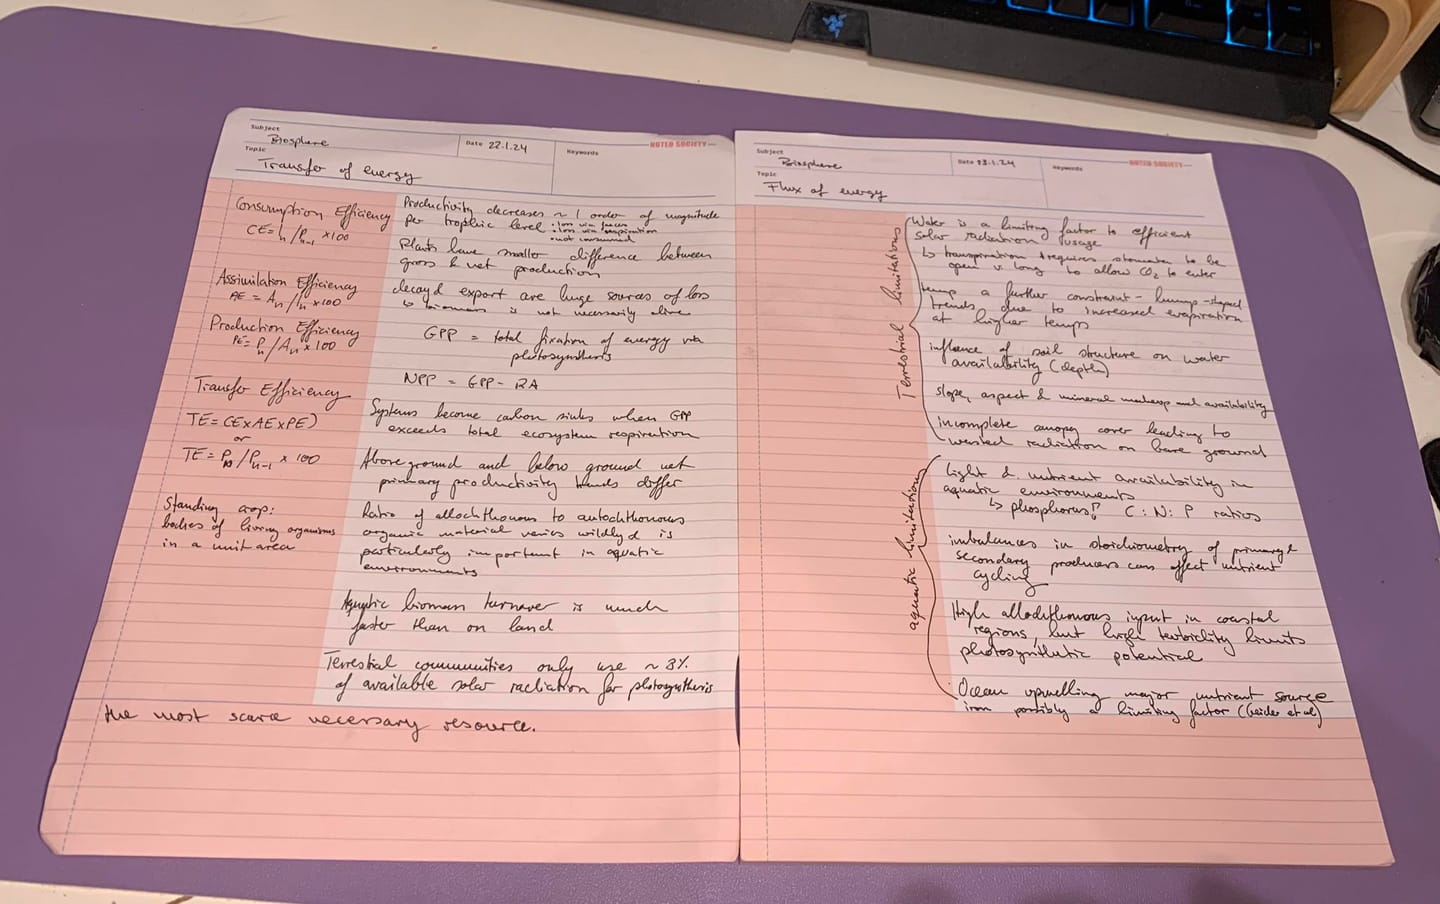 Subject
Biosphere
Date 22.1.24
Keywords
NOTED SOCIETY
Topic
Transfer of energy
Consumption Efficiency
CE = In/Pn-1 ×100
Assimilation Efficiency
AE = An/In ×100
Production Efficiency
PE = Pn/An × 100
Transfer Efficiency
TE = CE×AE×PE)
or
TE = Pn/Pn-1 × 100
Standing crop:
bodies of living organisms
in a unit area
Productivity decreases ~ 1 order of magnitude
per trophic level • loss via faeces
• loss via respiration
• not consumed
Plants have smaller difference between
gross & net production
decay & export are huge sources of loss
↳ biomass is not necessarily alive
GPP = total fixation of energy via
photosynthesis
NPP = GPP - RA
Systems become carbon sinks when GPP
exceeds total ecosystem respiration
Above ground and below ground net
primary productivity trends differ
Ratio of allochthonous to autochthonous
organic material varies wildly & is
particularly important in aquatic
environments
Aquatic biomass turnover is much
faster than on land
Terrestial communities only use ~ 3%
of available solar radiation for photosynthesis
the most scarce necessary resource.
Subject
Biosphere
Date 23.1.24
Keywords
NOTED SOCIETY
Topic
Flux of energy
Terrestrial limitations
Water is a limiting factor to efficient
solar radiation usage
↳ transpiration requires stomata to be
open v. long to allow CO2 to enter
temp a further constraint - hump-shaped
trends due to increased evapiration
at higher temps
influence of soil structure on water
availability (depth)
slope, aspect & mineral makeup and availability
incomplete canopy cover leading to
wasted radiation on bare ground
aquatic limitations
light & nutrient availability in
aquatic environments
↳ phosphorus! C:N:P ratios
imbalances in stoichiometry of primary &
secondary producers can affect nutrient
cycling
High allochthonous input in coastal
regions, but high turbidity limits
photosynthetic potential
Ocean upwelling major nutrient source
iron possibly a limiting factor (Geider et al)